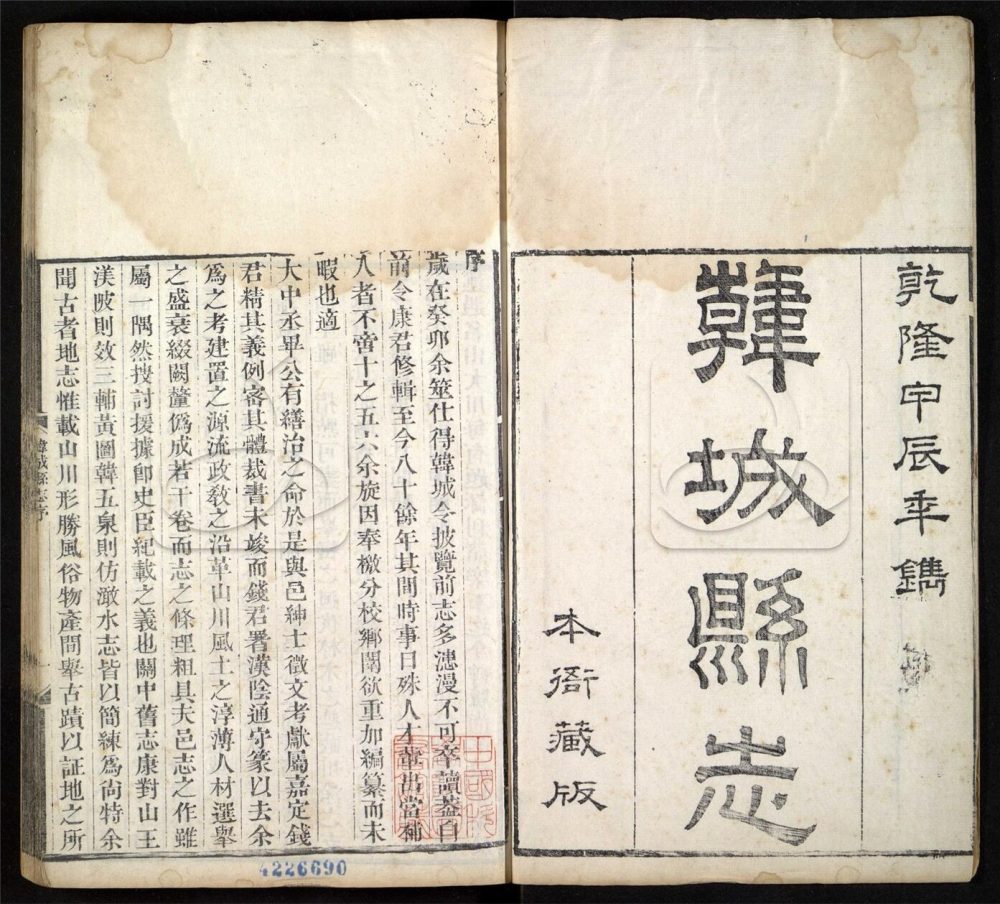 乾隆甲辰年鐫
韓城縣志
本衙藏版
序
歲在癸卯余筮仕得韓城令披覽前志多漶漫不可卒讀葢自
前令康君修輯至今八十餘年其間時事日殊人才輩出當補
入者不啻十之五六余旋因奉檄分校鄉闈欲重加編纂而未
暇也適
大中丞畢公有繕治之命於是與邑紳士徵文考獻屬嘉定錢
君精其義例審其體裁書未竣而錢君署漢陰通守篆以去余
爲之考建置之源流政敎之沿革山川風土之淳薄人材選舉
之盛衰綴闕釐僞成若干卷而志之條理粗具夫邑志之作雖
屬一隅然搜討援據卽史臣紀載之義也關中舊志康對山王
渼陂則效三輔黃圖韓五泉則仿澉水志皆以簡練爲尚特余
聞古者地志惟載山川形勝風俗物產間舉古蹟以証地之所
韓城縣志序
4226690